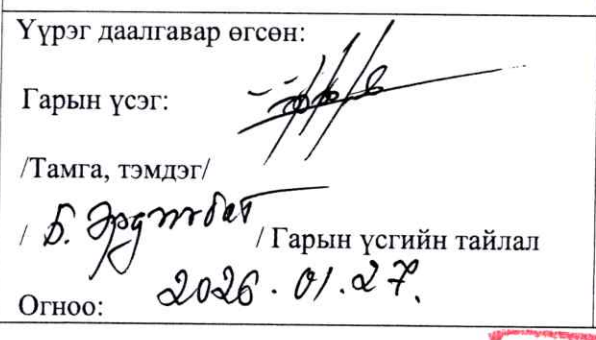 Үүрэг даалгавар өгсөн:
Гарын үсэг:
/Тамга, тэмдэг/
/ Б. Эрдэнэбат / Гарын үсгийн тайлал
Огноо: 2026.01.27.